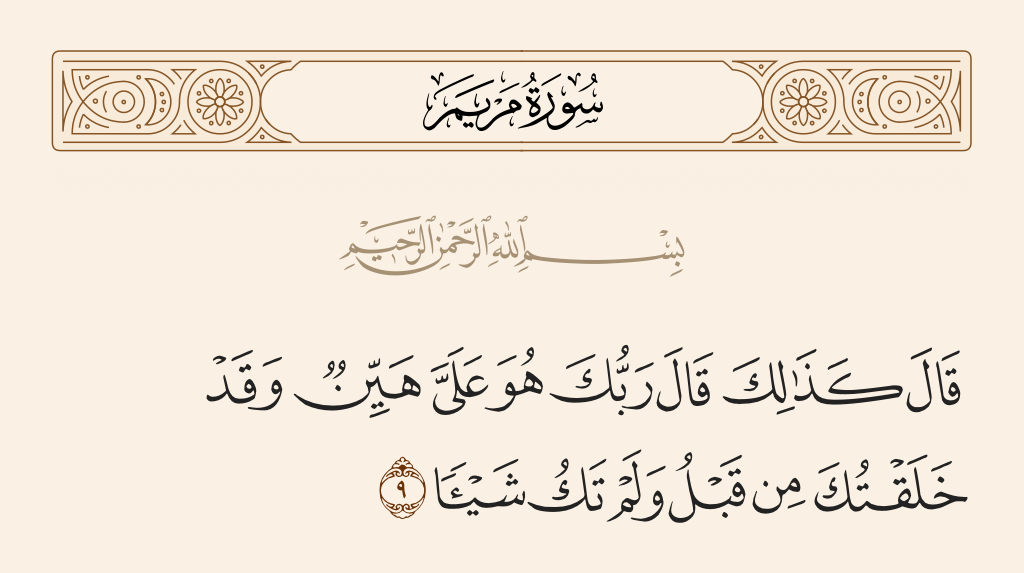 سُورَةُ مَرْيَمَ
بِسْمِ ٱللَّهِ ٱلرَّحْمَٰنِ ٱلرَّحِيمِ
قَالَ كَذَٰلِكَ قَالَ رَبُّكَ هُوَ عَلَىَّ هَيِّنٌ وَقَدْ
خَلَقْتُكَ مِن قَبْلُ وَلَمْ تَكُ شَيْـًٔا ٩